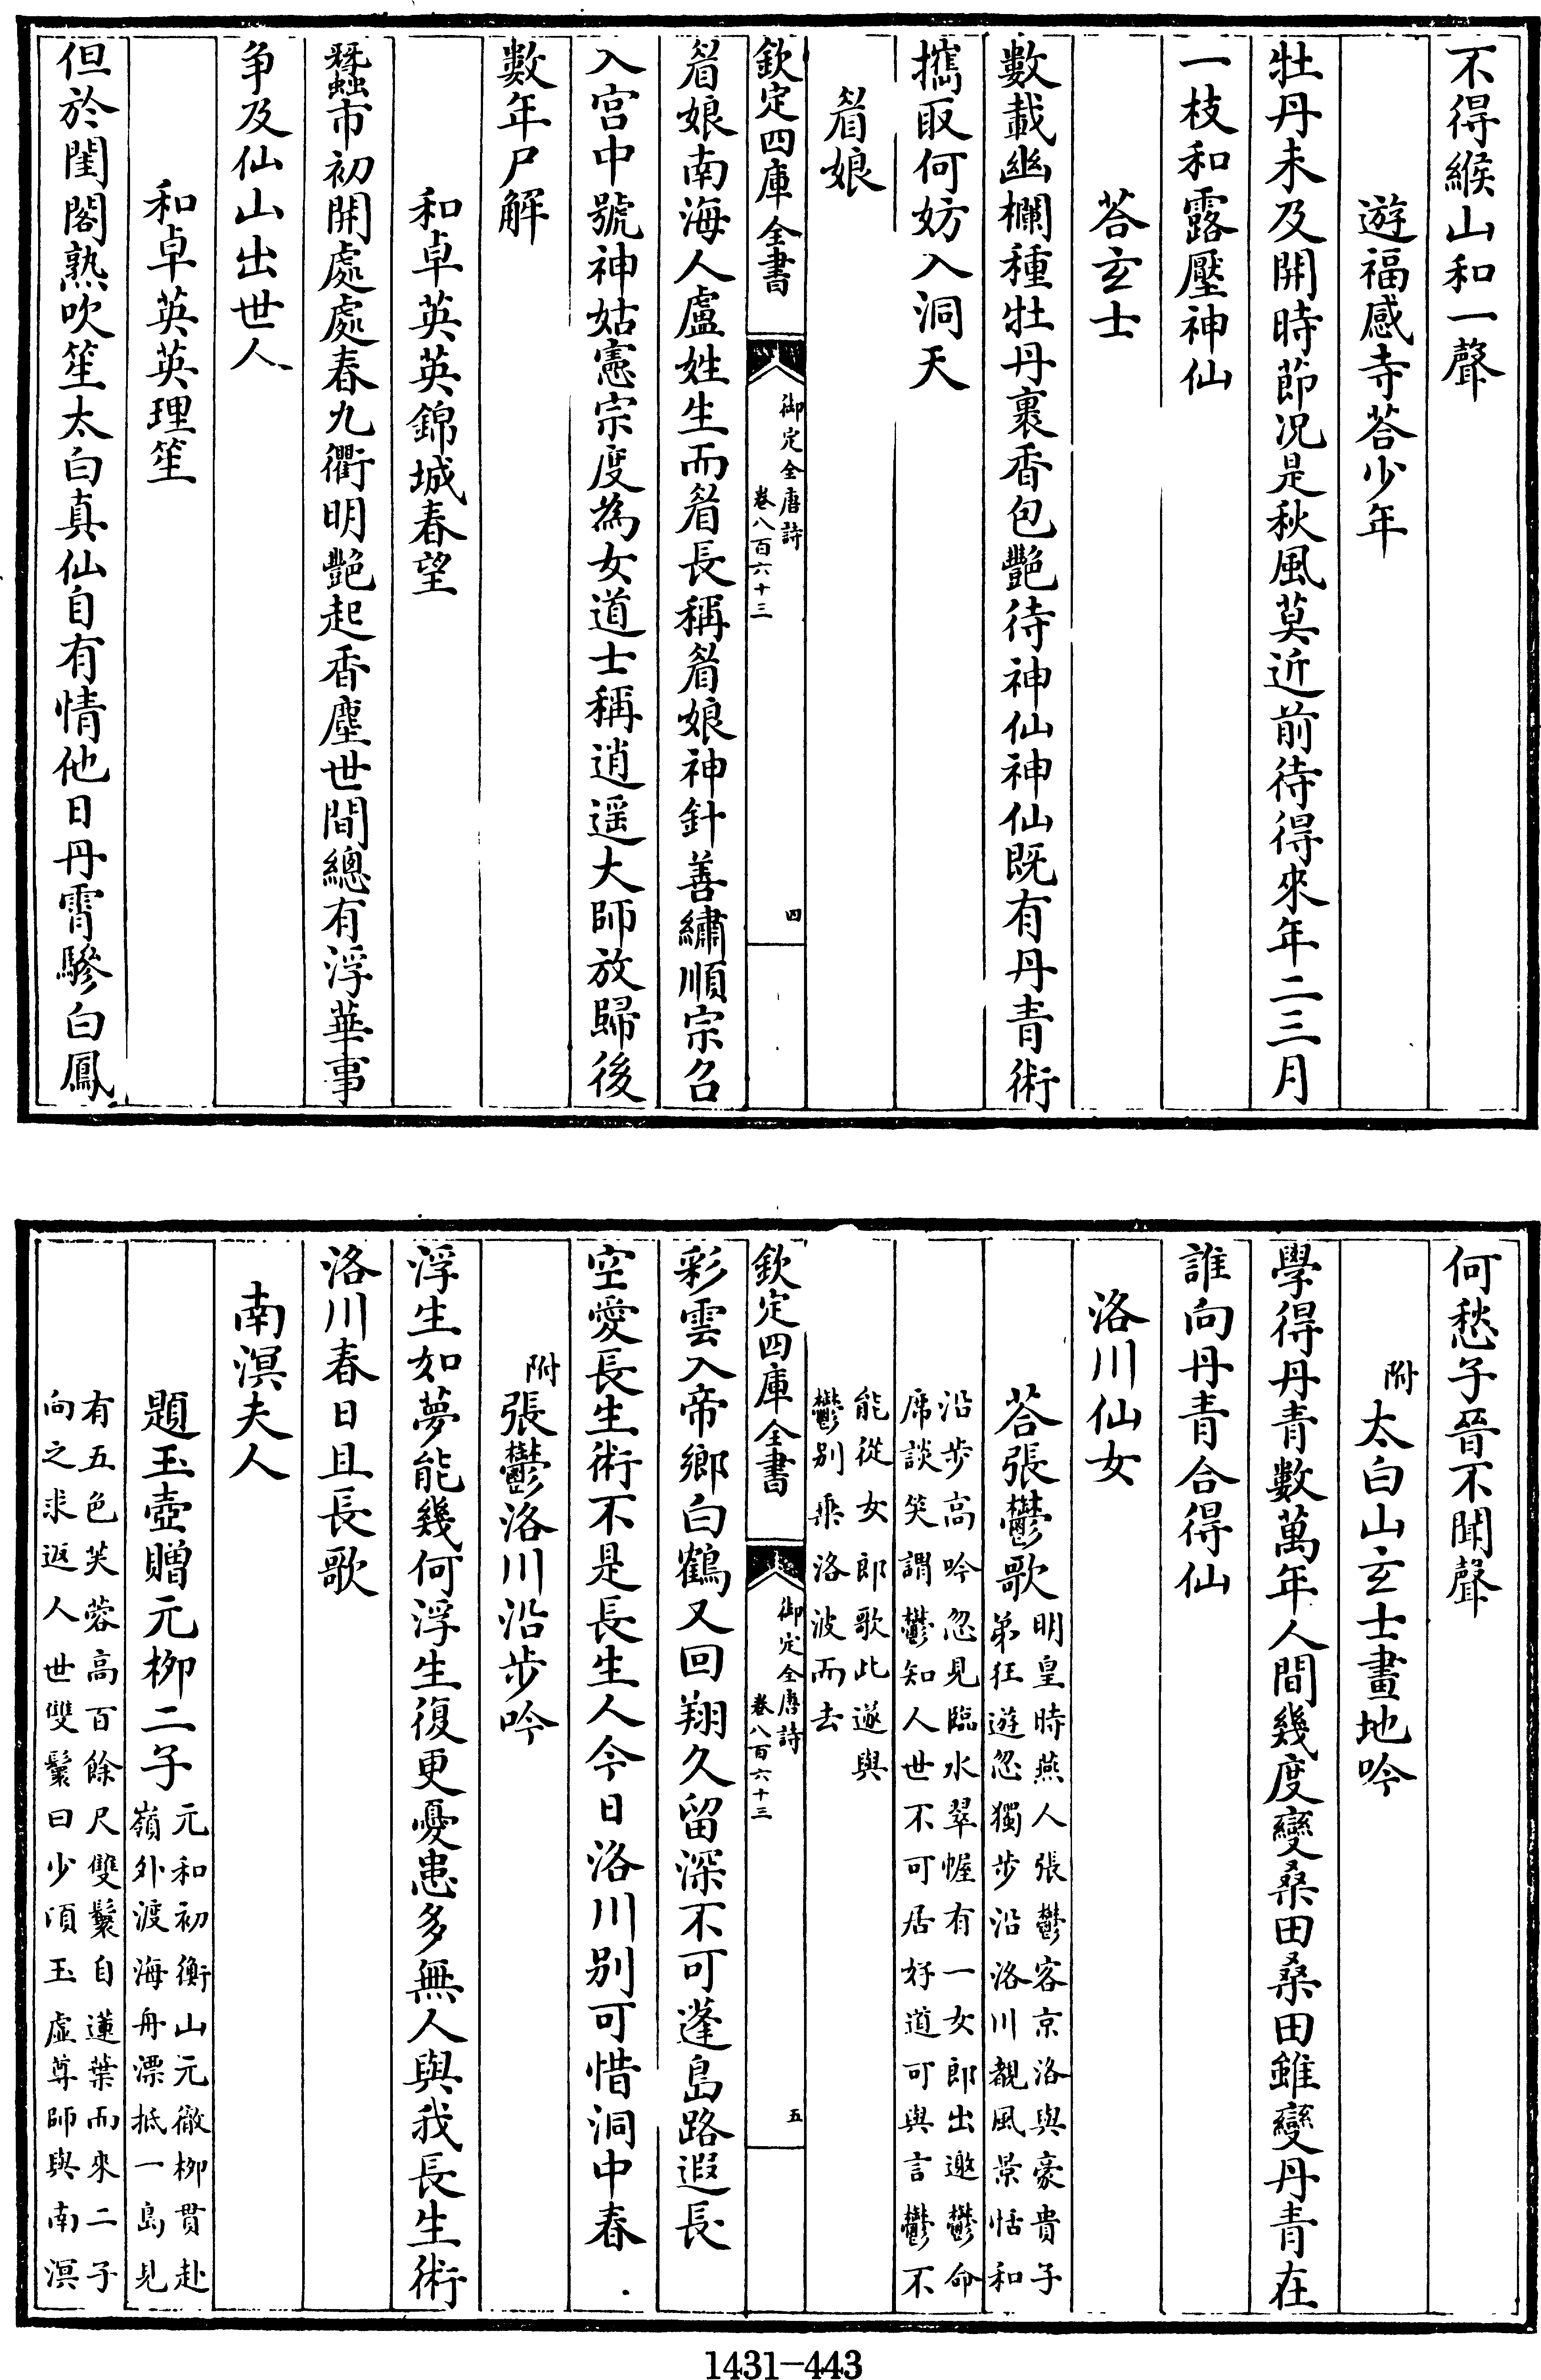 不得緱山和一聲
遊福感寺荅少年
牡丹未及開時節况是秋風莫近前待得來年二三月
一枝和露壓神仙
荅玄士
數載幽欄種牡丹裹香包艷待神仙神仙既有丹青術
攜取何妨入洞天
眉娘
欽定四庫全書
御定全唐詩
卷八百六十三
四
眉娘南海人盧姓生而眉長稱眉娘神針善繡順宗召
入宫中號神姑憲宗度為女道士稱逍遥大師放歸後
數年尸解
和卓英英錦城春望
蠶市初開處處春九衢明艷起香塵世間總有浮華事
争及仙山出世人
和卓英英理笙
但於閨閣熟吹笙太白真仙自有情他日丹霄驂白鳳
何愁子晉不聞聲
附太白山玄士畫地吟
學得丹青數萬年人間幾度變桑田桑田雖變丹青在
誰向丹青合得仙
洛川仙女
荅張鬱歌明皇時燕人張鬱客京洛與豪貴子
弟狂遊忽獨步沿洛川覩風景恬和
沿步高吟忽見臨水翠幄有一女郎出邀鬱命
席談笑謂鬱知人世不可居好道可與言鬱不
能從女郎歌此遂與
鬱别乗洛波而去
欽定四庫全書
御定全唐詩
卷八百六十三
五
彩雲入帝鄉白鶴又回翔久留深不可蓬島路遐長
空愛長生術不是長生人今日洛川别可惜洞中春
附張鬱洛川沿步吟
浮生如夢能幾何浮生復更憂患多無人與我長生術
洛川春日且長歌
南溟夫人
題玉壺贈元栁二子元和初衡山元徹栁貫赴
嶺外渡海舟漂抵一島見
有五色芙蓉高百餘尺雙鬟自蓮葉而來二子
向之求返人世雙鬟曰少頃玉虚尊師與南溟
1431-443